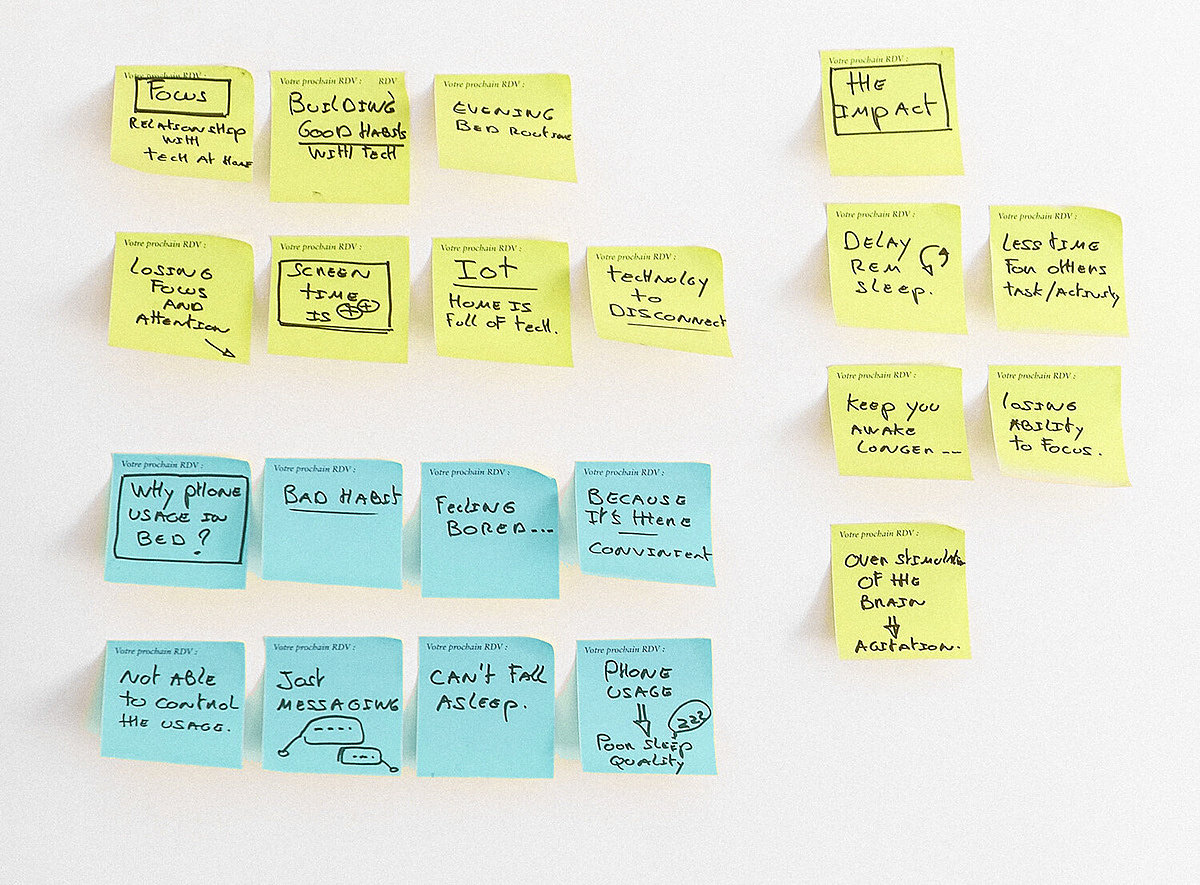 Votre prochain RDV :
Focus
RELATIONSHIP
WITH
tech At Home
Votre prochain RDV : RDV
BuilDING
GOOD HABits
WITH TECH
Votre prochain RDV :
EVENING
BED Routine
Votre prochain RDV :
LOSING
Focus
AND
Attention
Votre prochain RDV :
SCREEN
time
IS ++
Votre prochain RDV :
Iot
HOME IS
Full of tech.
Votre prochain RDV :
technoloy
to
DISCONNECt
Votre prochain RDV :
tHE
ImpAct
Votre prochain RDV :
DELAY
REM
Sleep.
Votre prochain RDV :
Less time
For others
task/Activity
Votre prochain RDV :
Keep you
AWAKE
LONGER --
Votre prochain RDV :
losing
ABILity
to Focus.
Votre prochain RDV :
OVER stimulation
OF tHE
BRAIN
⇓
AGITATION.
Votre prochain RDV :
WHy pHONE
USAGE IN
BED ?
Votre prochain RDV :
BAD HABIt
Votre prochain RDV :
Feeling
BORED...
Votre prochain RDV :
BECAUSE
It's tHERE
CONVINIENt
Votre prochain RDV :
Not ABLE
to control
tHE USAGE.
Votre prochain RDV :
Just
MESSAGING
Votre prochain RDV :
CAN't FALL
ASLEEP.
Votre prochain RDV :
PHONE
USAGE
⇓ zzz
Poor SLEEP
QUALITY